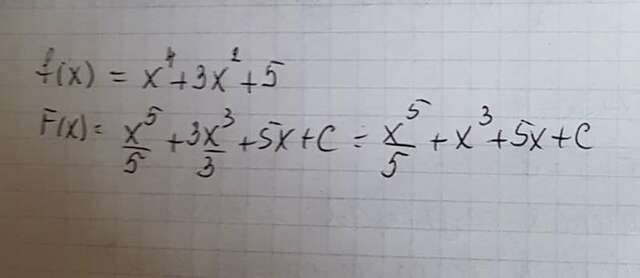 f(x) = x⁴+3x²+5
F(x) = x⁵/5 + 3x³/3 + 5x + C = x⁵/5 + x³ + 5x + C